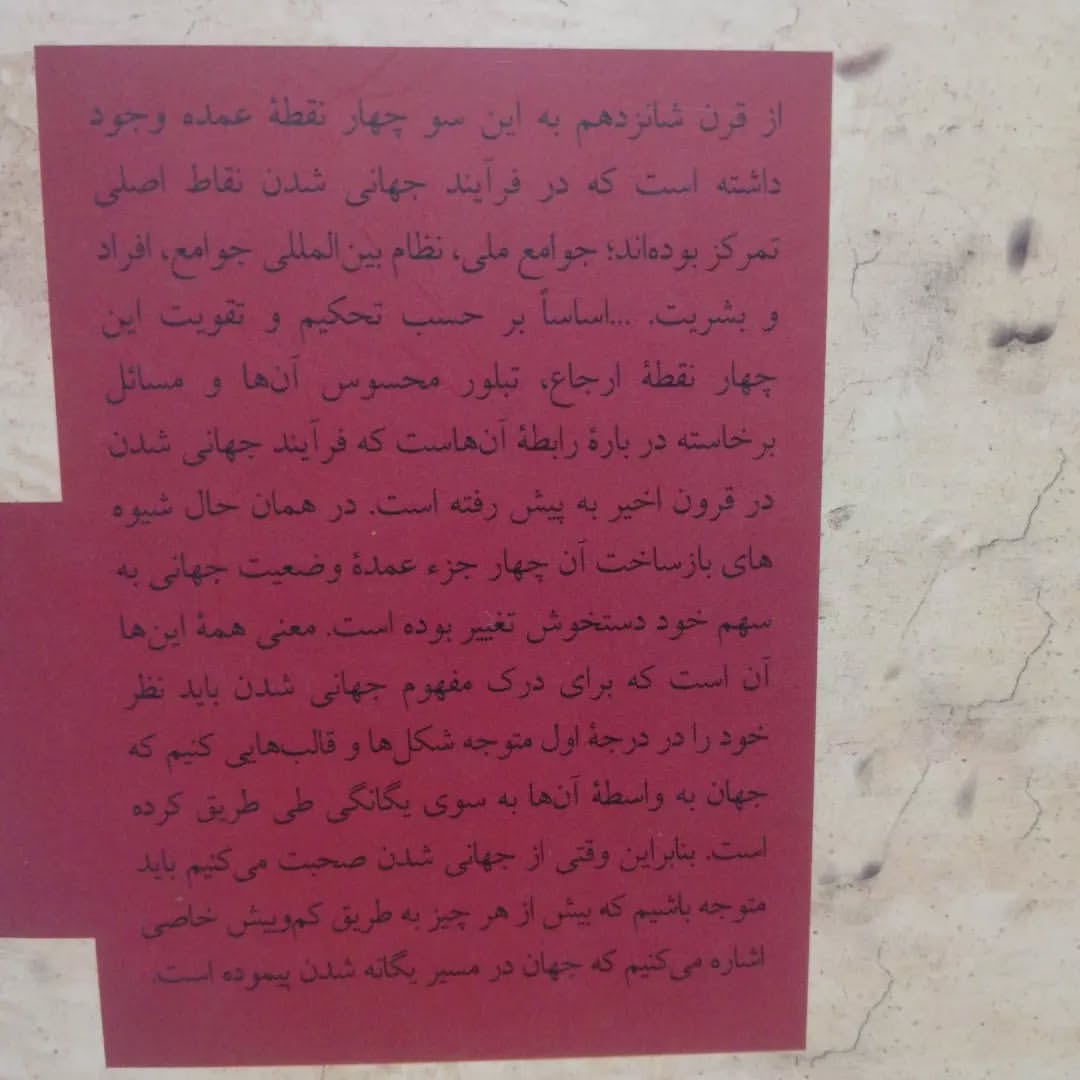 از قرن شانزدهم به این سو چهار نقطهٔ عمده وجود
داشته است که در فرآیند جهانی شدن نقاط اصلی
تمرکز بوده‌اند؛ جوامع ملی، نظام بین‌المللی جوامع، افراد
و بشریت. ...اساساً بر حسب تحکیم و تقویت این
چهار نقطهٔ ارجاع، تبلور محسوس آن‌ها و مسائل
برخاسته در بارهٔ رابطهٔ آن‌هاست که فرآیند جهانی شدن
در قرون اخیر به پیش رفته است. در همان حال شیوه
های بازساخت آن چهار جزء عمدهٔ وضعیت جهانی به
سهم خود دستخوش تغییر بوده است. معنی همهٔ این‌ها
آن است که برای درک مفهوم جهانی شدن باید نظر
خود را در درجهٔ اول متوجه شکل‌ها و قالب‌هایی کنیم که
جهان به واسطهٔ آن‌ها به سوی یگانگی طی طریق کرده
است. بنابراین وقتی از جهانی شدن صحبت می‌کنیم باید
متوجه باشیم که بیش از هر چیز به طریق کم‌وبیش خاصی
اشاره می‌کنیم که جهان در مسیر یگانه شدن پیموده است.